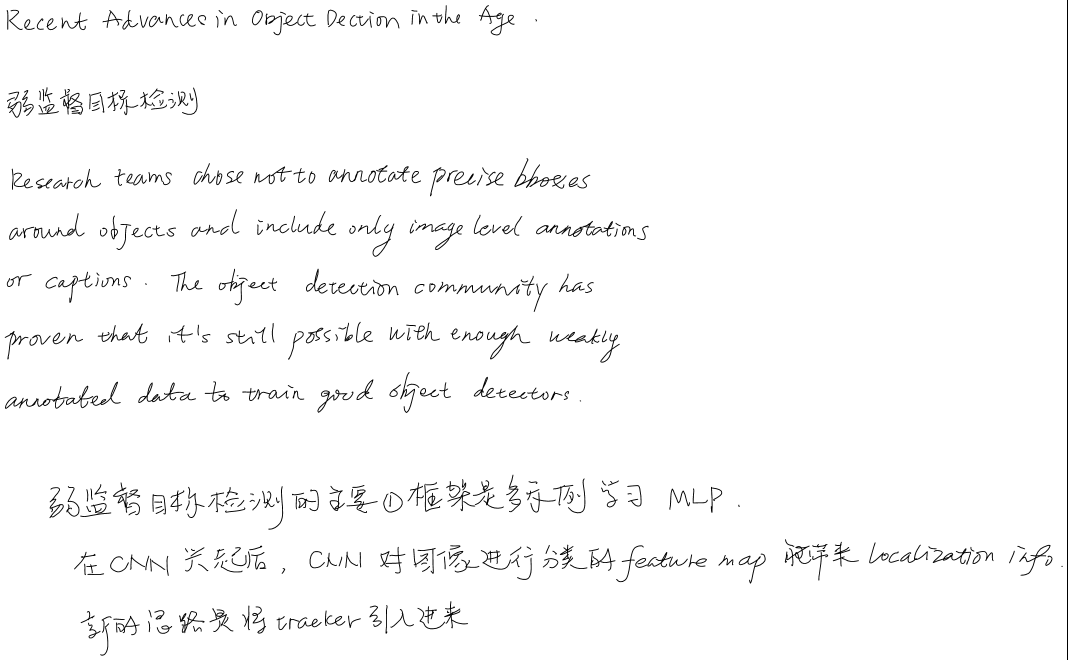 Recent Advances in Object Dection in the Age.
弱监督目标检测
Research teams chose not to annotate precise bboxes
around objects and include only image level annotations
or captions. The object detection community has
proven that it's still possible with enough weakly
annotated data to train good object detectors.
弱监督目标检测的主要①框架是多示例学习 MLP.
在CNN兴起后, CNN对图像进行分类的feature map 能带来 localization info.
新的思路是将tracker引入进来